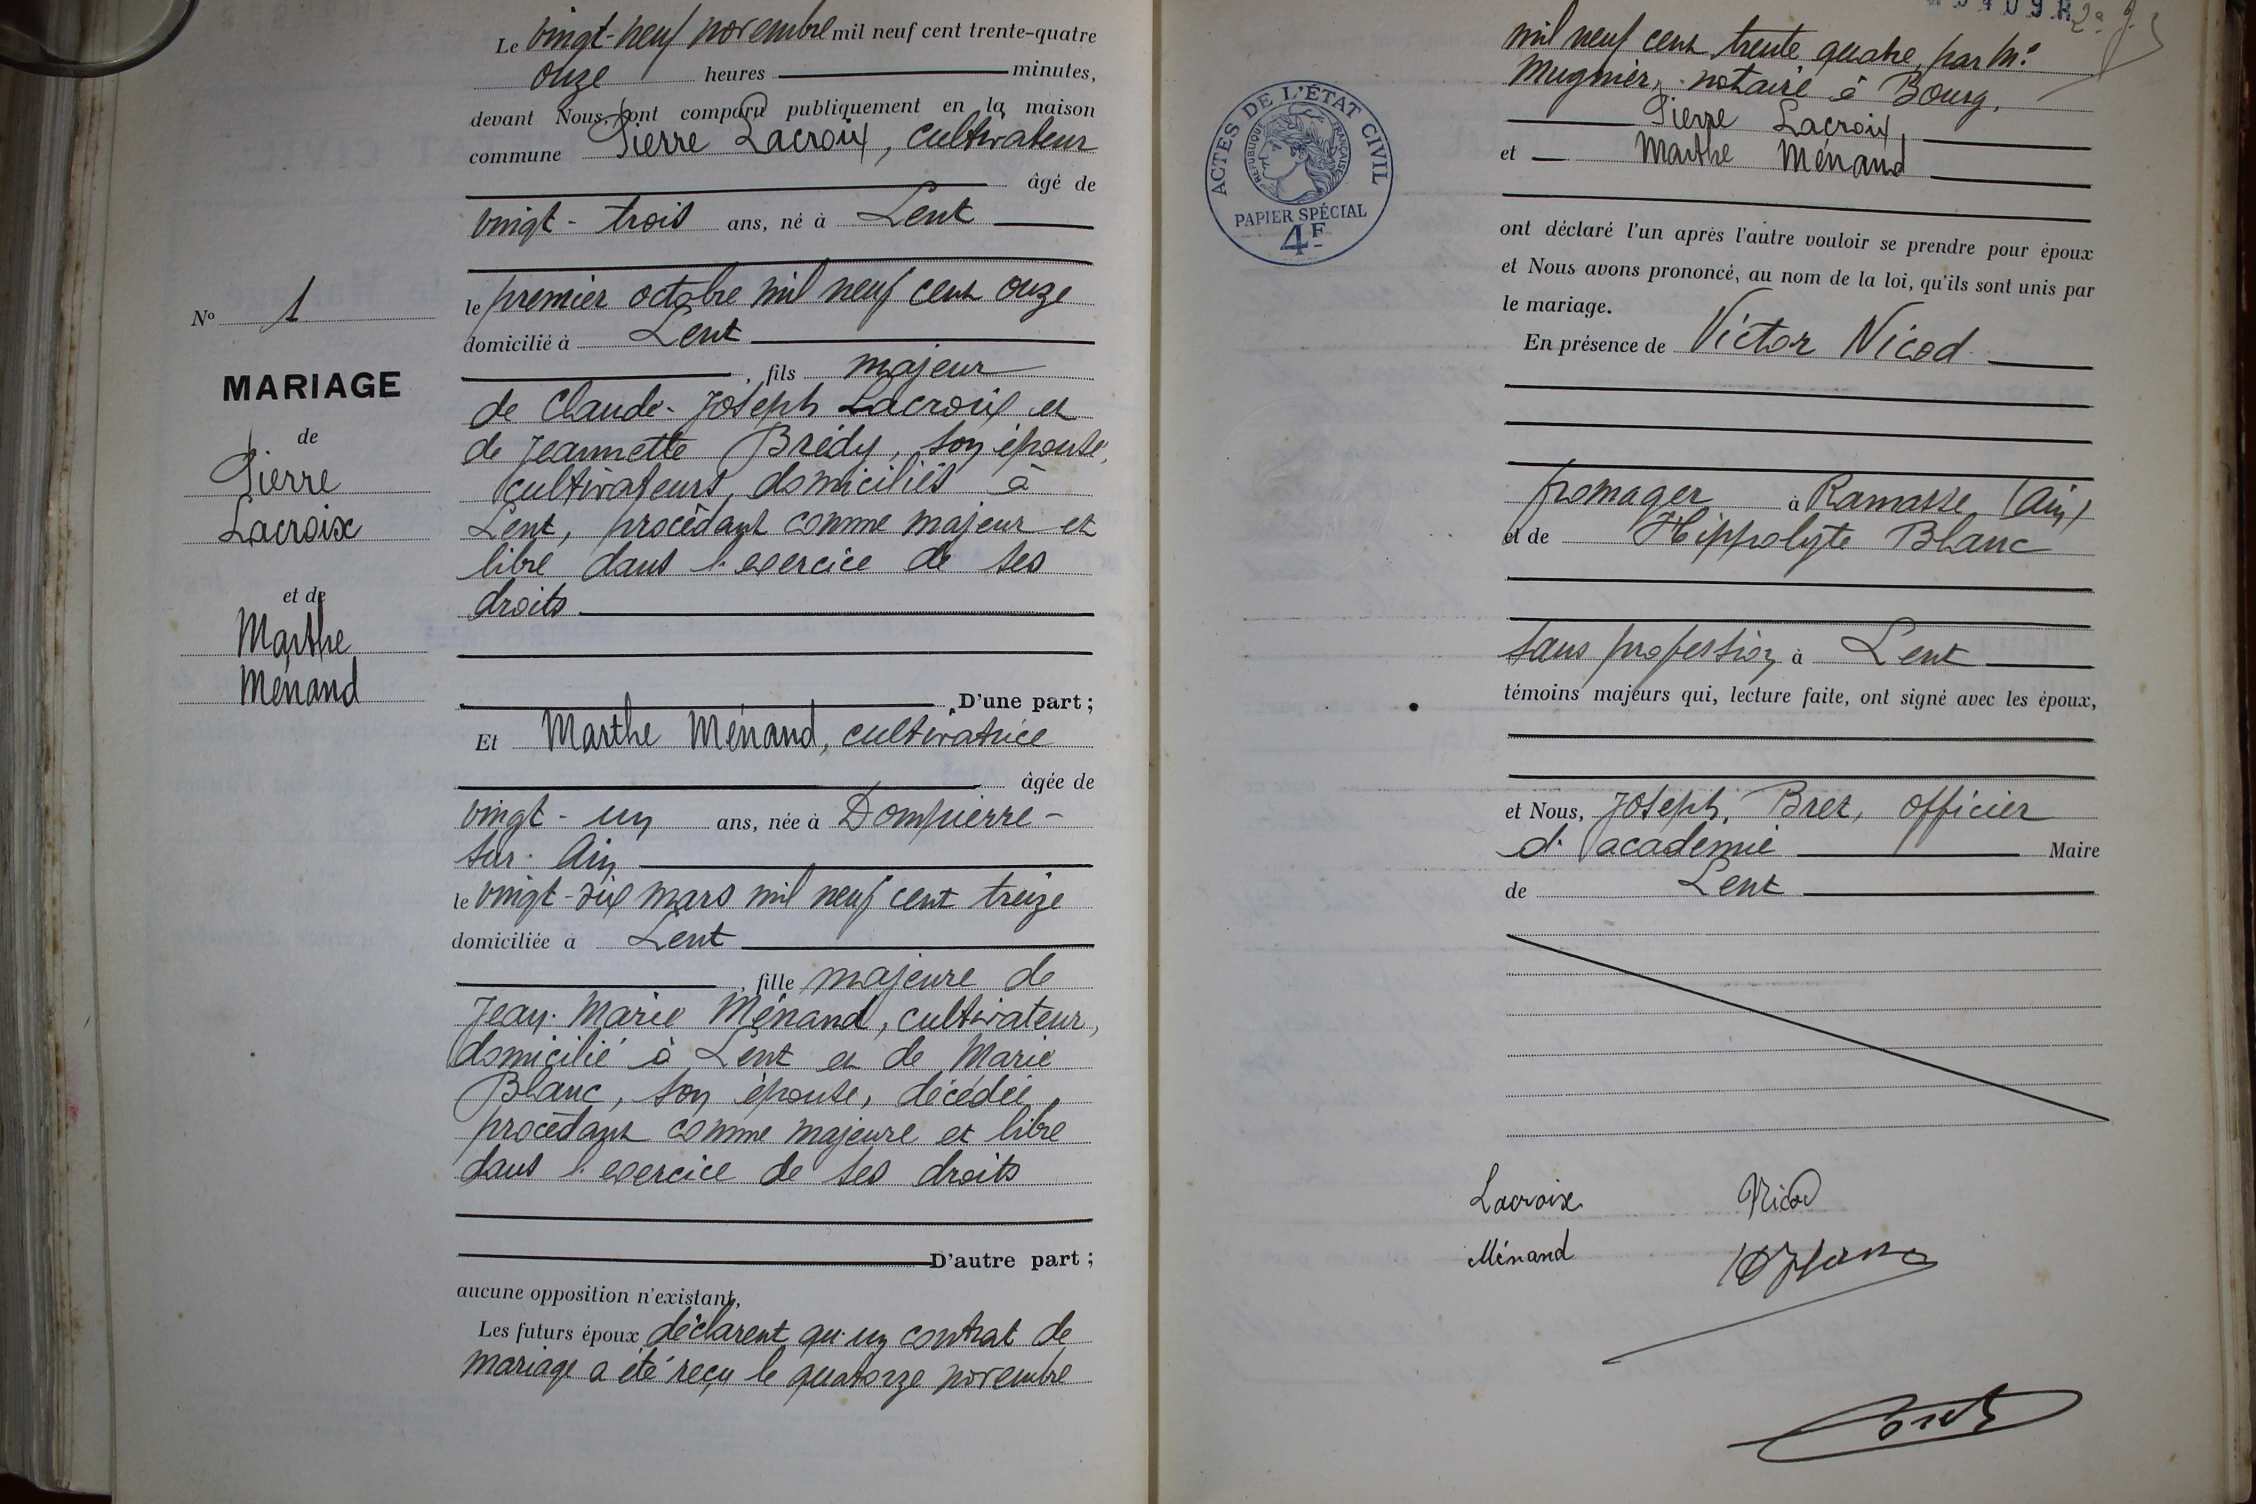 N° 1
MARIAGE
de
Pierre
Lacroix
et de
Marthe
Ménand
Le vingt-neuf novembre mil neuf cent trente-quatre
onze heures minutes,
devant Nous, ont comparu publiquement en la maison
commune Pierre Lacroix, cultivateur
âgé de
vingt-trois ans, né à Lent
le premier octobre mil neuf cent onze
domicilié à Lent
, fils majeur
de Claude-Joseph Lacroix et
de Jeannette Brédy, son épouse,
cultivateurs, domiciliés à
Lent, procédant comme majeur et
libre dans l'exercice de ses
droits
D'une part ;
Et Marthe Ménand, cultivatrice
âgée de
vingt-un ans, née à Dompierre-
sur-Ain
le vingt-six mars mil neuf cent treize
domiciliée à Lent
, fille majeure de
Jean-Marie Ménand, cultivateur,
domicilié à Lent et de Marie
Blanc, son épouse, décédée,
procédant comme majeure et libre
dans l'exercice de ses droits
D'autre part ;
aucune opposition n'existant,
Les futurs époux déclarent qu'un contrat de
mariage a été reçu le quatorze novembre
mil neuf cent trente quatre, par Me
Mugnier, notaire à Bourg.
Pierre Lacroix
et Marthe Ménand
ont déclaré l'un après l'autre vouloir se prendre pour époux
et Nous avons prononcé, au nom de la loi, qu'ils sont unis par
le mariage.
En présence de Victor Nicod
fromager à Ramasse (Ain)
et de Hippolyte Blanc
sans profession à Lent
témoins majeurs qui, lecture faite, ont signé avec les époux,
et Nous, Joseph Bret, officier
d'académie Maire
de Lent
Lacroix Nicod
Ménand
Bret
ACTES DE L'ÉTAT CIVIL
RÉPUBLIQUE FRANÇAISE
PAPIER SPÉCIAL
4F